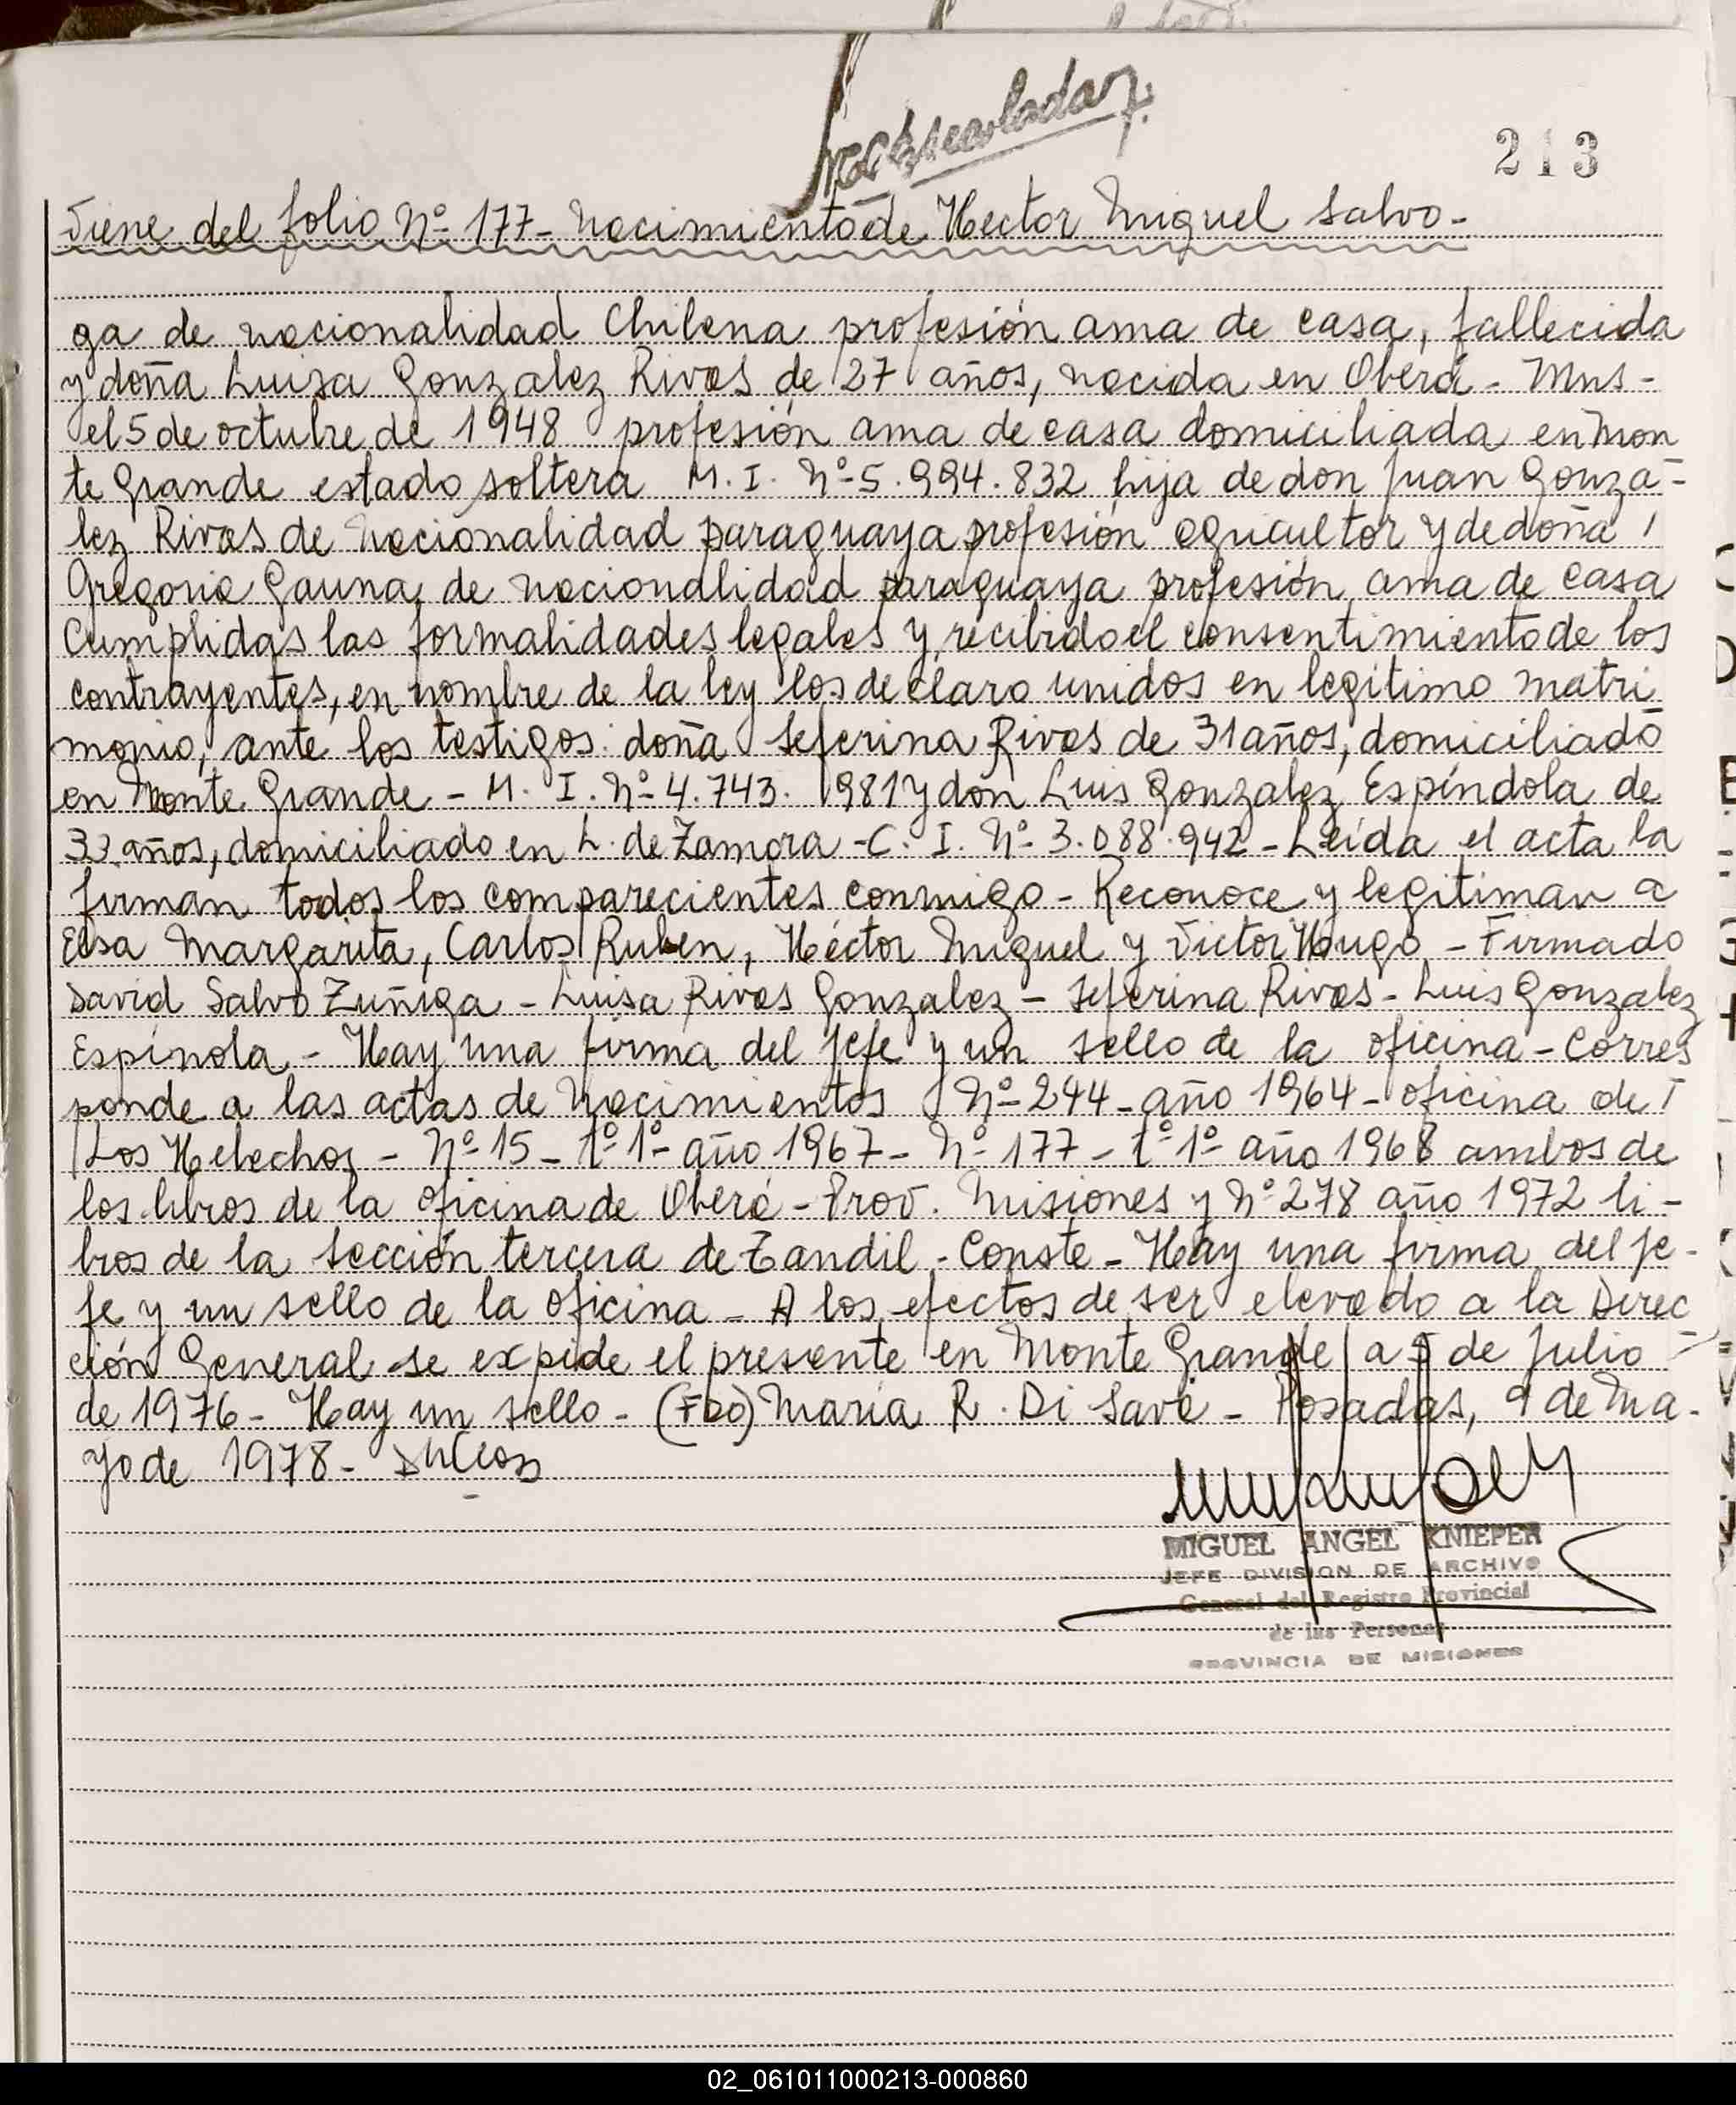 213
Viene del folio Nº 177- nacimiento de Hector Miguel Salvo-
ga de nacionalidad Chilena profesión ama de casa, fallecida
y doña Luisa Gonzalez Rivas de 27 años, nacida en Oberá - Mns-
el 5 de octubre de 1948 profesión ama de casa domiciliada en Mon
te Grande estado soltera M. I. Nº 5.994.832 hija de don Juan Gonza-
lez Rivas de nacionalidad paraguaya profesión agricultor y de doña
Gregoria Gauna, de nacionalidad paraguaya profesión ama de casa
Cumplidas las formalidades legales y recibido el consentimiento de los
contrayentes, en nombre de la ley los declaro unidos en legítimo matri
monio, ante los testigos: doña Seferina Rivas de 31 años, domiciliado
en Monte Grande - M. I. Nº 4.743. 1981 y don Luis Gonzalez Espíndola de
33 años, domiciliado en L. de Zamora - C. I. Nº 3.088.942 - Leída el acta la
firman todos los comparecientes conmigo - Reconoce y legitiman a
Elsa Margarita, Carlos Ruben, Héctor Miguel y Victor Hugo - Firmado
David Salvo Zuñiga - Luisa Rivas Gonzalez - Seferina Rivas - Luis Gonzalez
Espínola - Hay una firma del Jefe y un sello de la oficina - Corres
ponde a las actas de nacimientos Nº 244 - año 1964 - oficina de
Los Helechos - Nº 15 - tº 1º - año 1967 - Nº 177 - tº 1º año 1968 ambos de
los libros de la oficina de Oberá - Prov. Misiones y Nº 278 año 1972 li-
bros de la sección tercera de Tandil - Conste - Hay una firma del je-
fe y un sello de la oficina - A los efectos de ser elevado a la Direc
ción General se expide el presente en Monte Grande a 5 de Julio
de 1976 - Hay un sello - (Fdo) María R. Di Save - Posadas, 9 de Ma-
yo de 1978 -
MIGUEL ANGEL KNIEPER
JEFE DIVISION DE ARCHIVO
General del Registro Provincial
de las Personas
PROVINCIA DE MISIONES
02_061011000213-000860